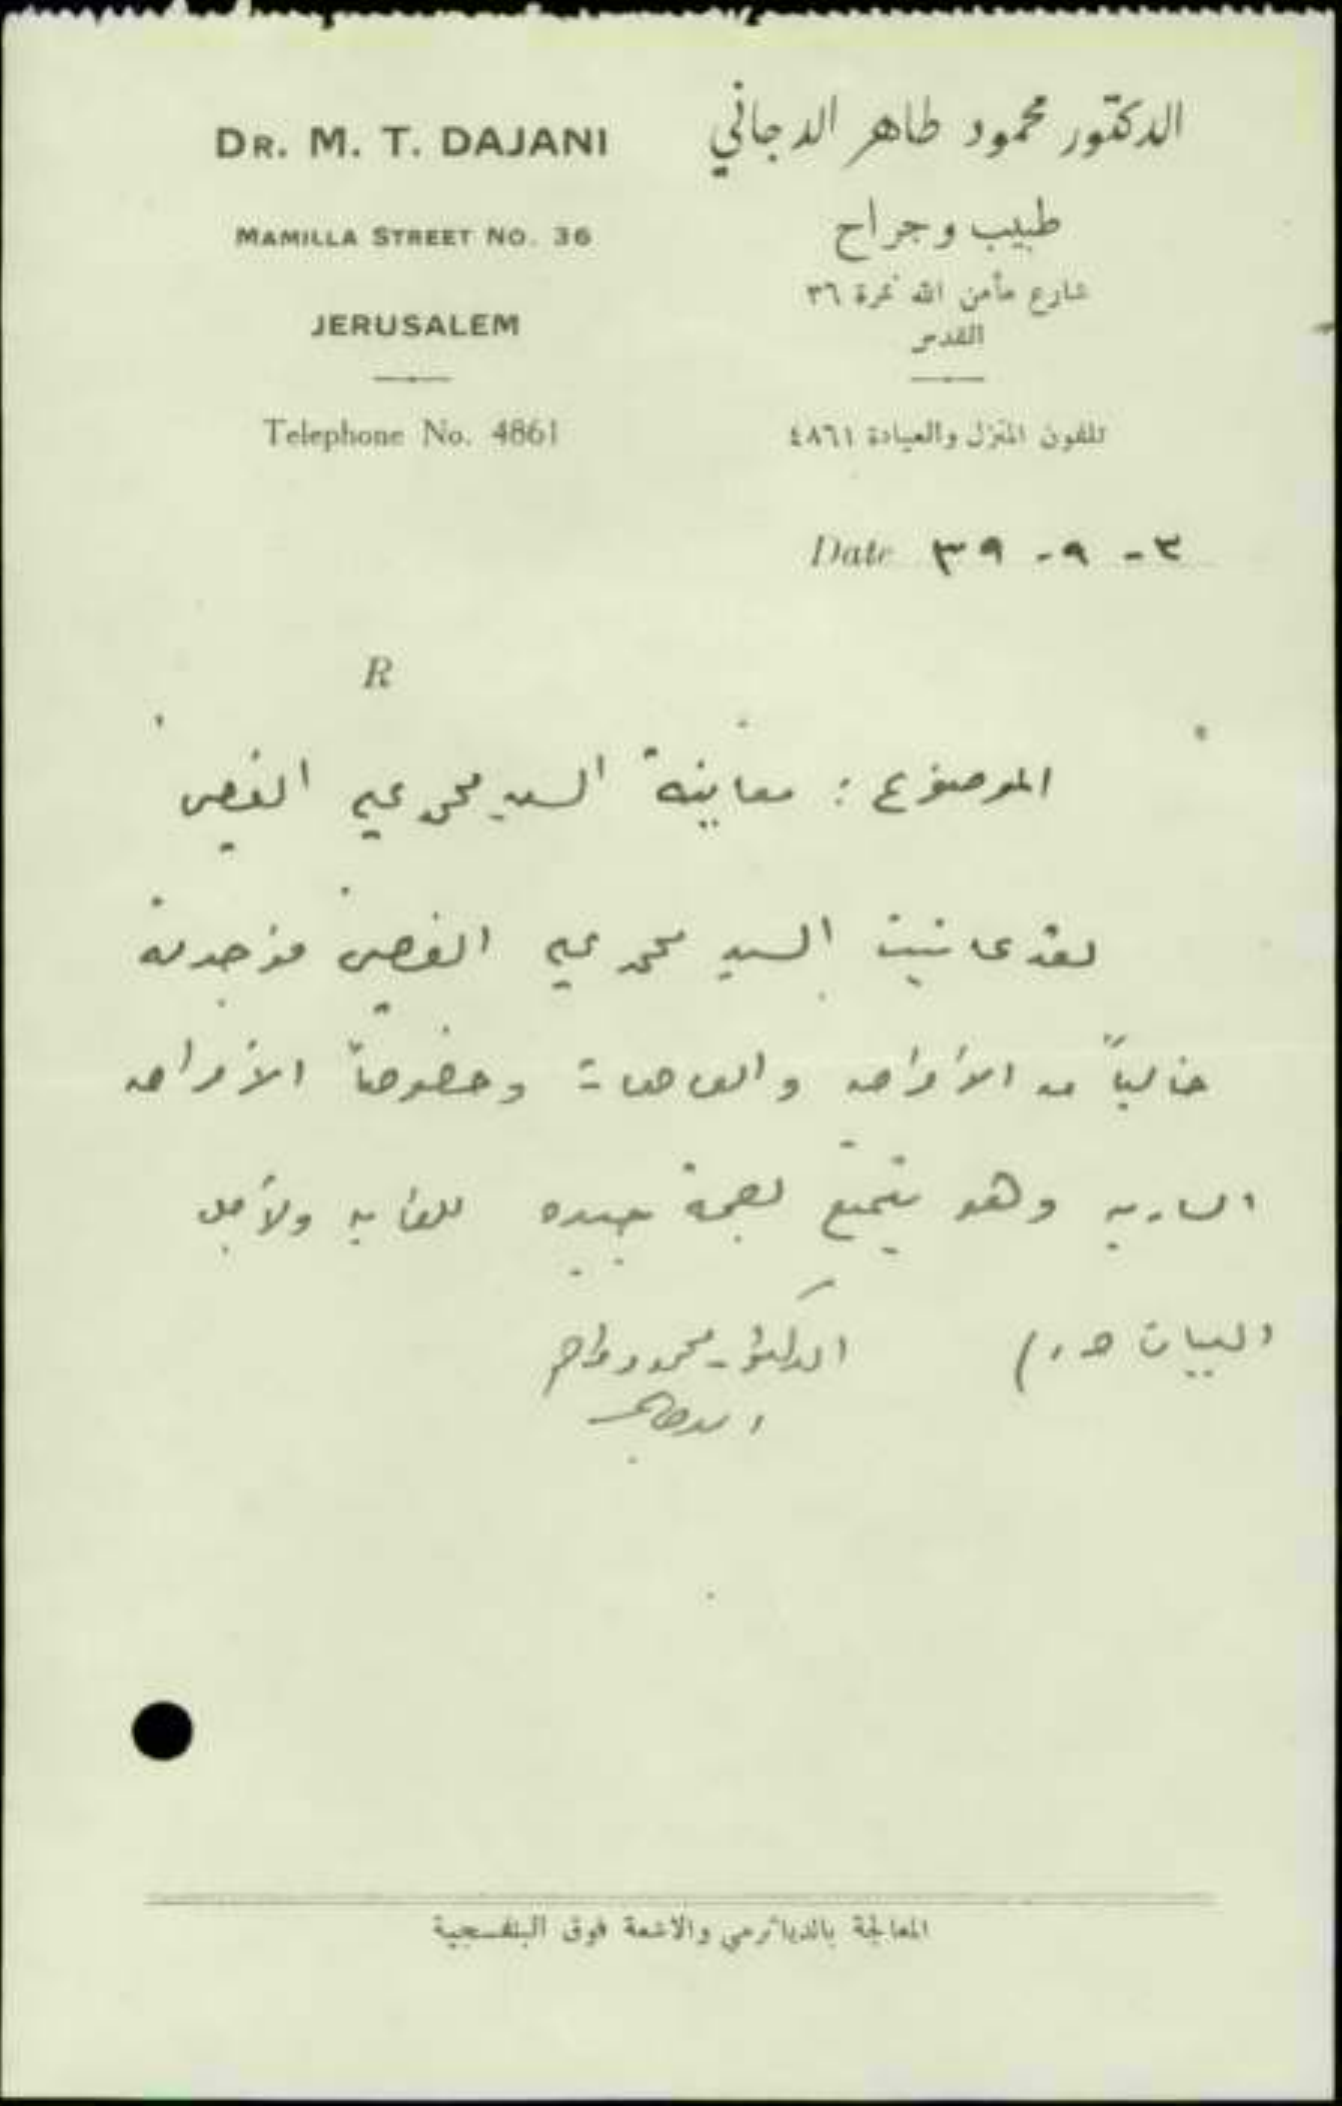 DR. M. T. DAJANI
MAMILLA STREET NO. 36
JERUSALEM
Telephone No. 4861
الدكتور محمود طاهر الدجاني
طبيب وجراح
شارع مأمن الله نمرة ٣٦
القدس
تلفون المنزل والعيادة ٤٨٦١
Date ٣ - ٩ - ٣٩
R
الموضوع : معاينة السيد محمد علي
لقد عاينت السيد محمد علي فوجدته
خالياً من الأمراض والعاهات وخصوصاً الأمراض
السارية وهو يتمتع بصحة جيدة للغاية ولأجل
البيان
الدكتور محمود طاهر
الدجاني
المعالجة بالدياترمي والاشعة فوق البنفسجية